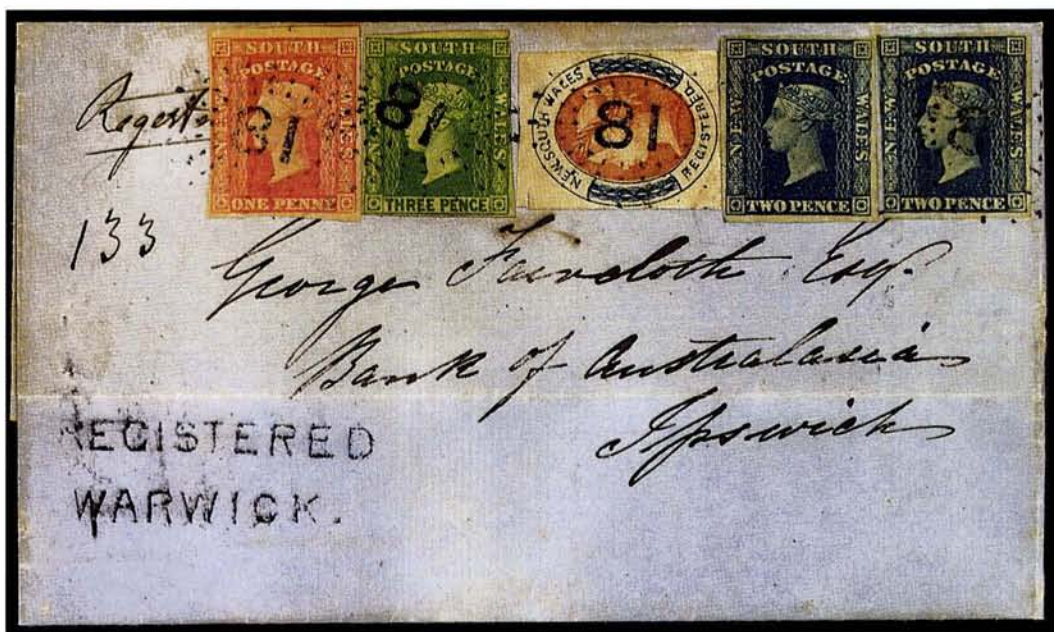 SOUTH
POSTAGE
NEW
WALES
ONE PENNY
81
SOUTH
POSTAGE
NEW
WALES
THREE PENCE
81
NEW SOUTH WALES
REGISTERED
81
SOUTH
POSTAGE
NEW
WALES
TWO PENCE
SOUTH
POSTAGE
NEW
WALES
TWO PENCE
133
George Faircloth Esqr.
Bank of Australasia
Ipswich
REGISTERED
WARWICK.